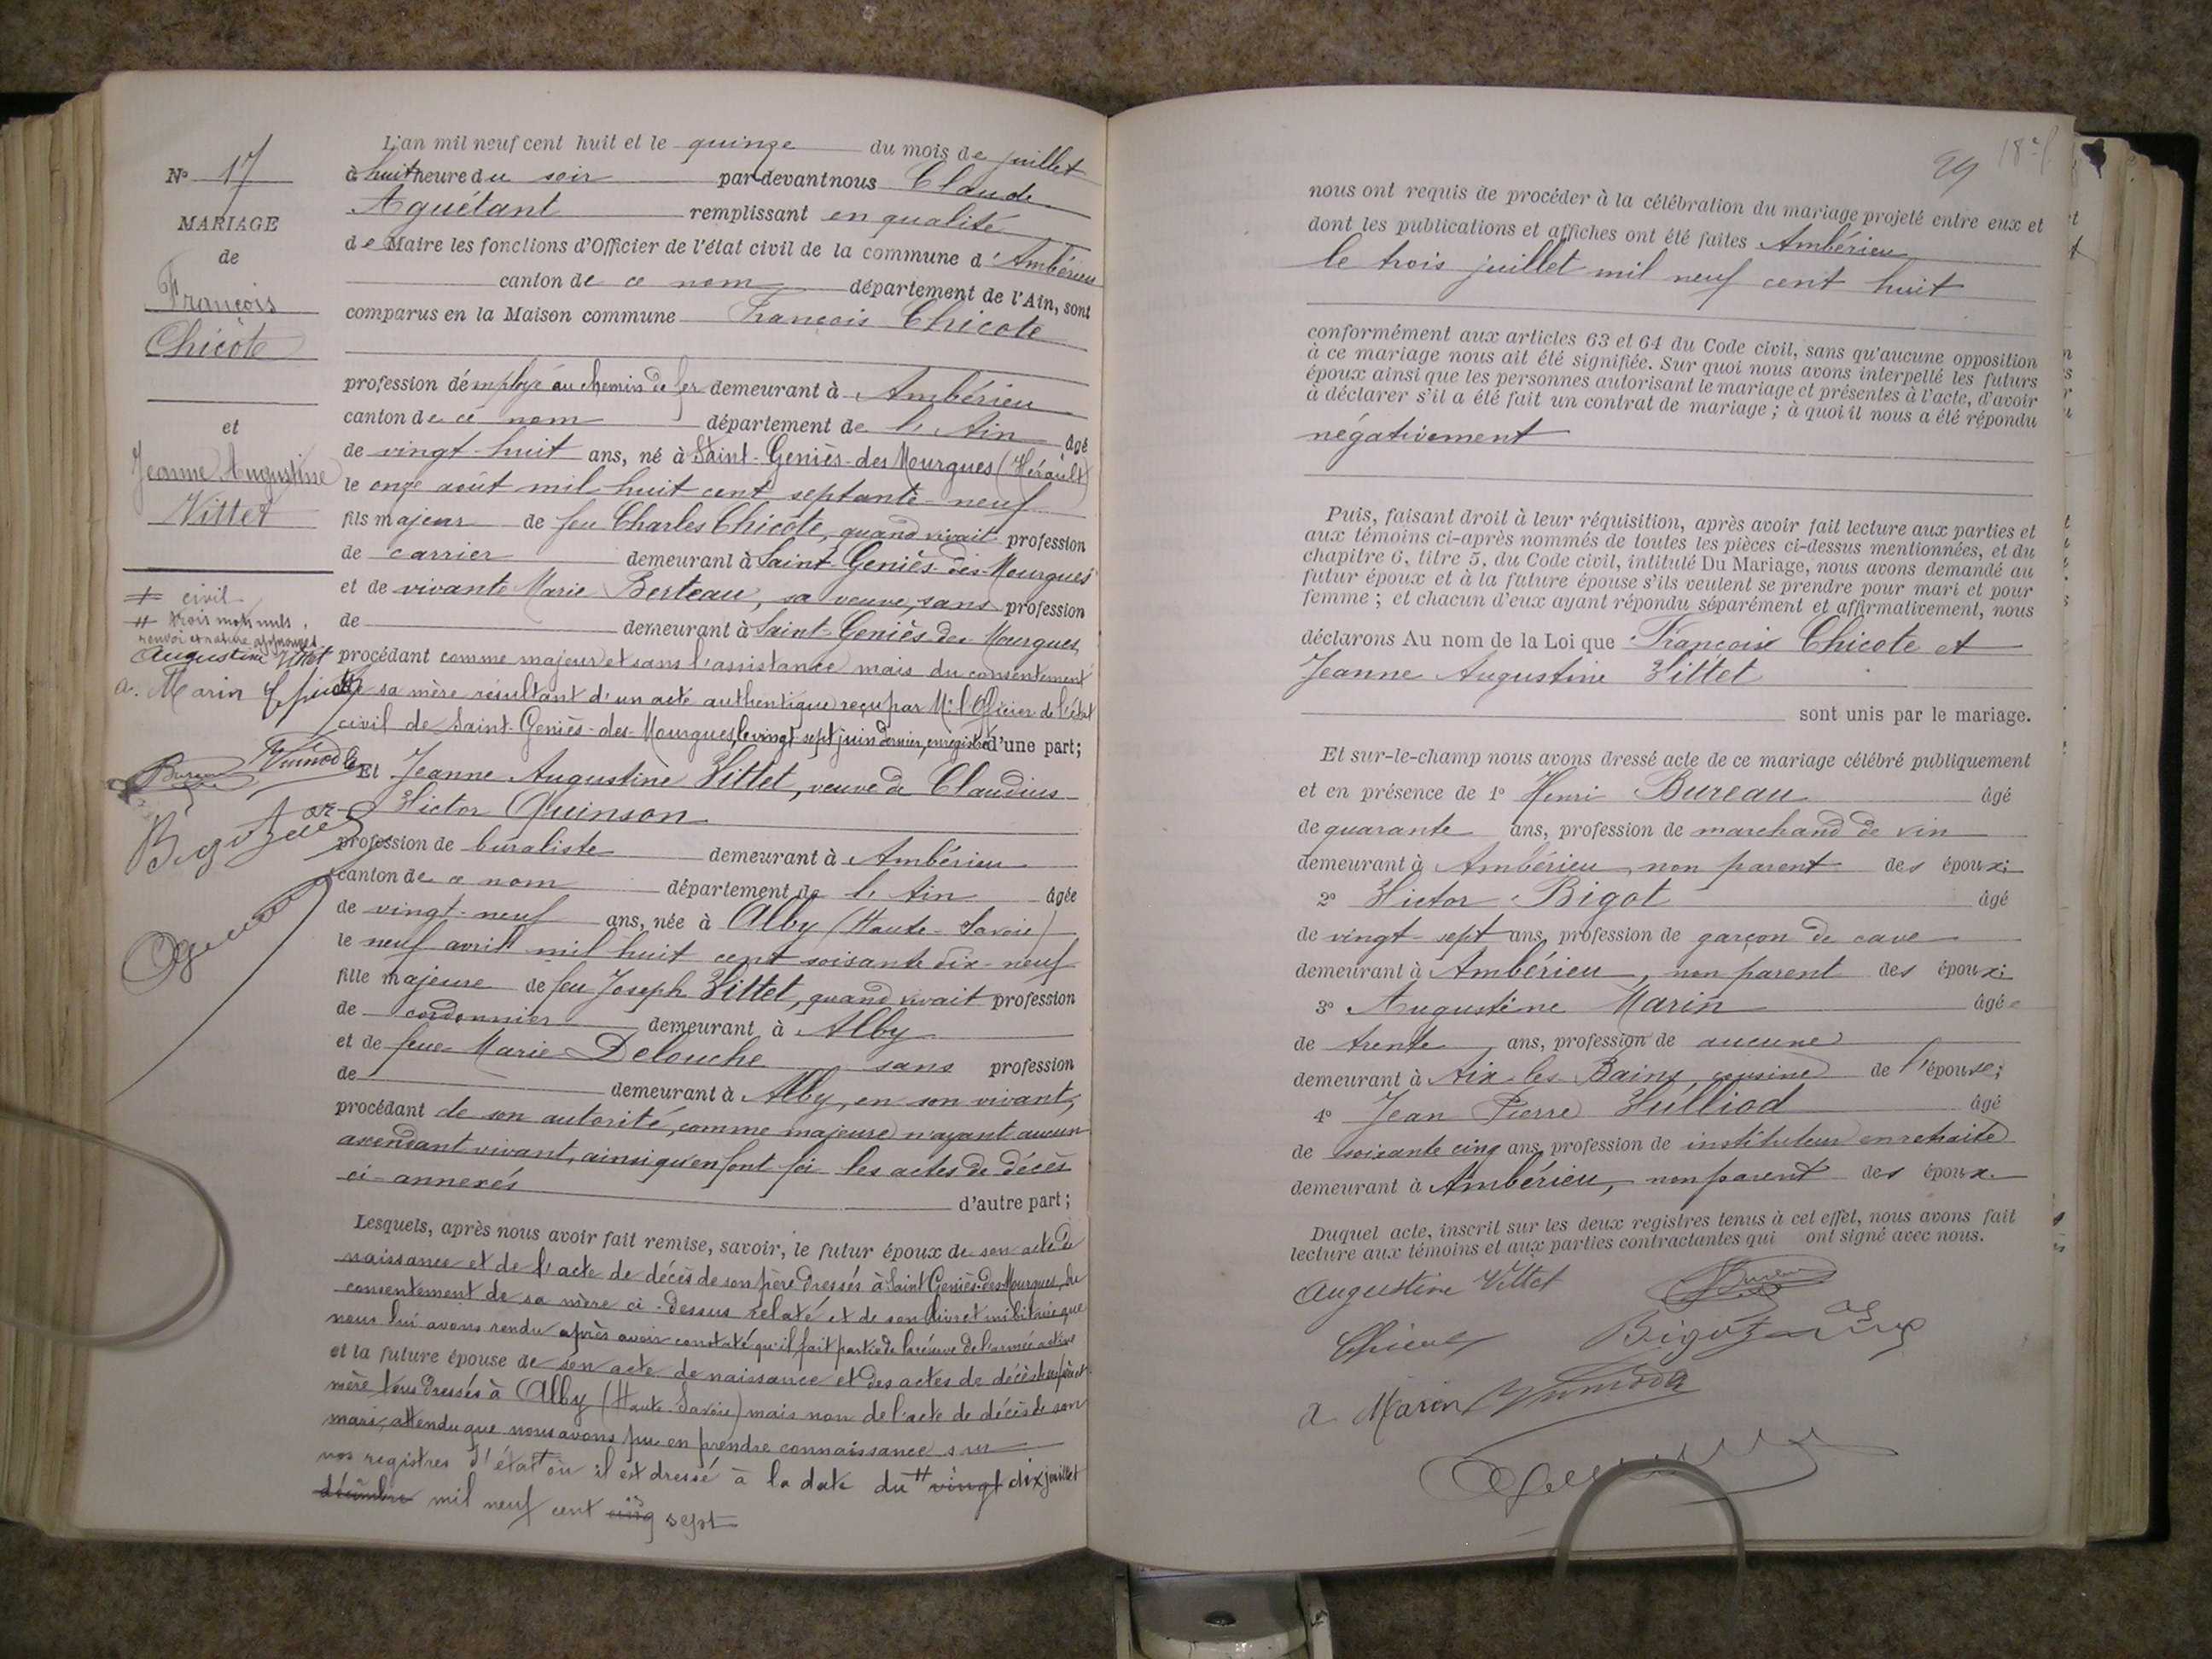 Nº 17
MARIAGE
de
François
Chicote
et
Jeanne Augustine
Vittet
+ civil
# trois mots nuls.
renvoi et rature approuvés
Augustine Vittet
a. Marin
Bureau
Bigot
L'an mil neuf cent huit et le quinze du mois de juillet
à huit heure du soir par devant nous Claude
Aguétant remplissant en qualité
de Maire les fonctions d'Officier de l'état civil de la commune d'Ambérieu
canton de ce nom département de l'Ain, sont
comparus en la Maison commune François Chicote
profession d'employé au chemin de fer demeurant à Ambérieu
canton de ce nom département de l'Ain âgé
de vingt-huit ans, né à Saint-Geniès-des-Mourgues (Hérault)
le onze août mil huit cent septante-neuf
fils majeur de feu Charles Chicote, quand vivait profession
de carrier demeurant à Saint-Geniès-des-Mourgues
et de vivante Marie Berteau, sa veuve, sans profession
de demeurant à Saint-Geniès des Mourgues,
procédant comme majeur et sans l'assistance mais du consentement
de sa mère résultant d'un acte authentique reçu par Mr l'Officier de l'état
civil de Saint-Geniès-des-Mourgues, le vingt-sept juin dernier, enregistré d'une part;
Et Jeanne Augustine Vittet, veuve de Claudius
Victor Quinson
profession de buraliste demeurant à Ambérieu
canton de ce nom département de l'Ain âgée
de vingt-neuf ans, née à Alby (Haute-Savoie)
le neuf avril mil huit cent soixante dix-neuf
fille majeure de feu Joseph Vittet, quand vivait profession
de cordonnier demeurant à Alby
et de feue Marie Delouche sans profession
de demeurant à Alby, en son vivant,
procédant de son autorité, comme majeure n'ayant aucun
ascendant vivant, ainsi qu'en font foi les actes de décès
ci-annexés d'autre part;
Lesquels, après nous avoir fait remise, savoir, le futur époux de son acte de
naissance et de l'acte de décès de son père dressés à Saint Geniès-des-Mourgues, du
consentement de sa mère ci-dessus relaté et de son livret militaire que
nous lui avons rendu après avoir constaté qu'il fait partie de la réserve de l'armée active
et la future épouse de son acte de naissance et des actes de décès de ses père et
mère tous dressés à Alby (Haute Savoie) mais non de l'acte de décès de son
mari, attendu que nous avons pu en prendre connaissance sur
nos registres d'état + où il est dressé à la date du # vingt dix juillet
décembre mil neuf cent cinq sept
29
nous ont requis de procéder à la célébration du mariage projeté entre eux et
dont les publications et affiches ont été faites Ambérieu
le trois juillet mil neuf cent huit
conformément aux articles 63 et 64 du Code civil, sans qu'aucune opposition
à ce mariage nous ait été signifiée. Sur quoi nous avons interpellé les futurs
époux ainsi que les personnes autorisant le mariage et présentes à l'acte, d'avoir
à déclarer s'il a été fait un contrat de mariage; à quoi il nous a été répondu
négativement
Puis, faisant droit à leur réquisition, après avoir fait lecture aux parties et
aux témoins ci-après nommés de toutes les pièces ci-dessus mentionnées, et du
chapitre 6, titre 5, du Code civil, intitulé Du Mariage, nous avons demandé au
futur époux et à la future épouse s'ils veulent se prendre pour mari et pour
femme; et chacun d'eux ayant répondu séparément et affirmativement, nous
déclarons Au nom de la Loi que François Chicote et
Jeanne Augustine Vittet
sont unis par le mariage.
Et sur-le-champ nous avons dressé acte de ce mariage célébré publiquement
et en présence de 1º Henri Bureau âgé
de quarante ans, profession de marchand de vin
demeurant à Ambérieu, non parent des époux;
2º Victor Bigot âgé
de vingt-sept ans, profession de garçon de cave
demeurant à Ambérieu, non parent des époux;
3º Augustine Marin âgée
de trente ans, profession de aucune
demeurant à Aix-les-Bains, cousine de l'épouse;
4º Jean Pierre Vulliod âgé
de soixante cinq ans, profession de instituteur en retraite
demeurant à Ambérieu, non parent des époux.
Duquel acte, inscrit sur les deux registres tenus à cet effet, nous avons fait
lecture aux témoins et aux parties contractantes qui ont signé avec nous.
Augustine Vittet Bureau
Bigot
a Marin